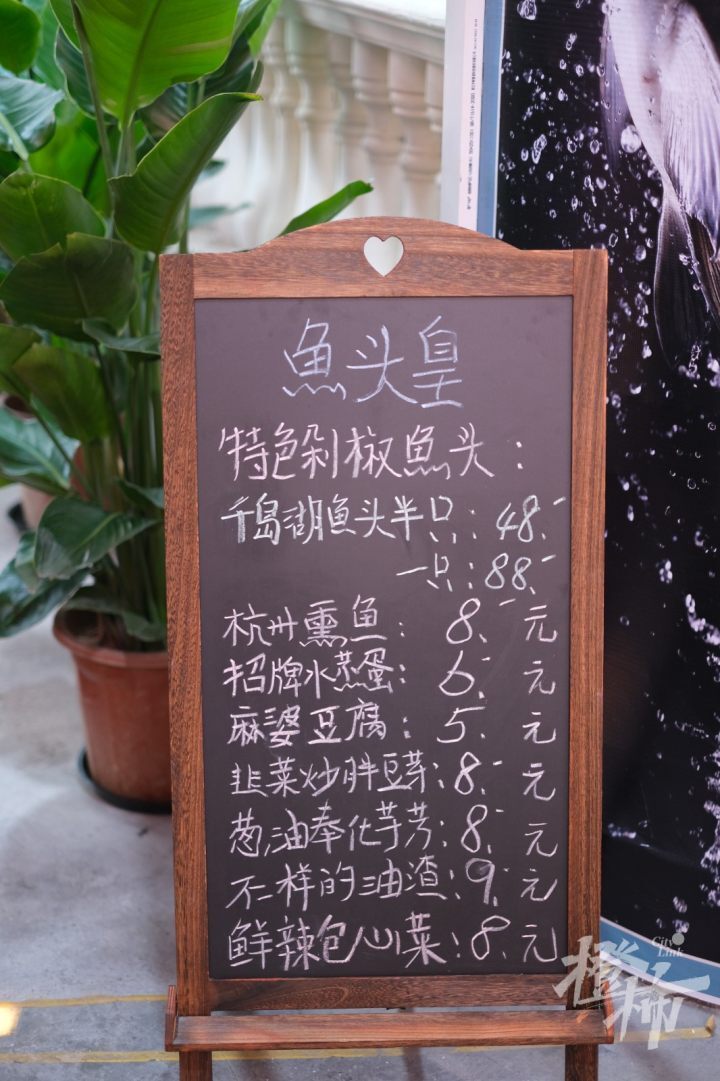 魚头皇
特色剁椒魚头：
千岛湖鱼头半只：48.-
一只：88.-
杭州熏鱼：8.-元
招牌水蒸蛋：6.-元
麻婆豆腐：5.-元
韭菜炒胖豆芽：8.-元
葱油奉化芋艿：8.-元
不一样的油渣：9.-元
鲜辣包心菜：8.元
橙柿
City Link